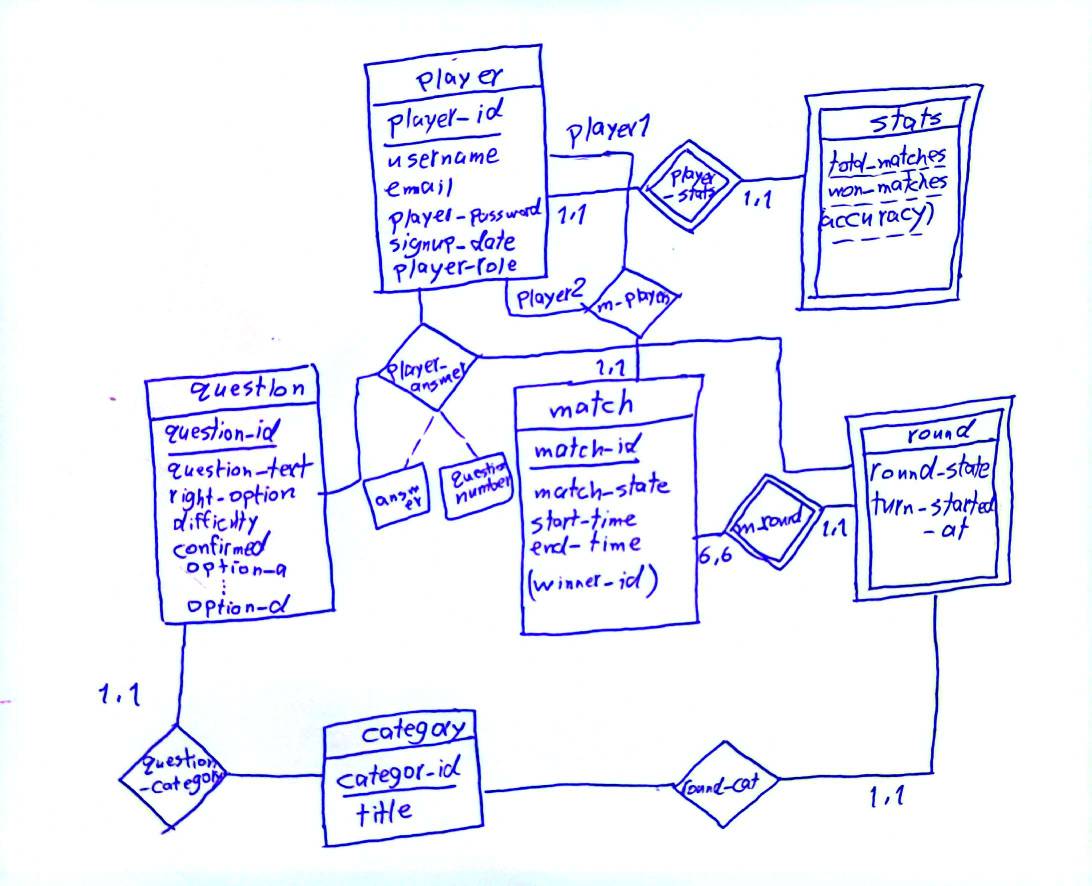 player
player_id
username
email
player_password
signup_date
player-role
player1
player
-stats
1,1
1,1
stats
total_matches
won_matches
(accuracy)
player2
m-player
1,1
player-
answer
answ
er
question
number
question
question-id
question_text
right-option
difficulty
confirmed
option-a
option-d
match
match-id
match-state
start-time
end-time
(winner-id)
m_round
6,6
1,1
round
round-state
turn-started
-at
1,1
question
-category
category
categor-id
title
round-cat
1,1